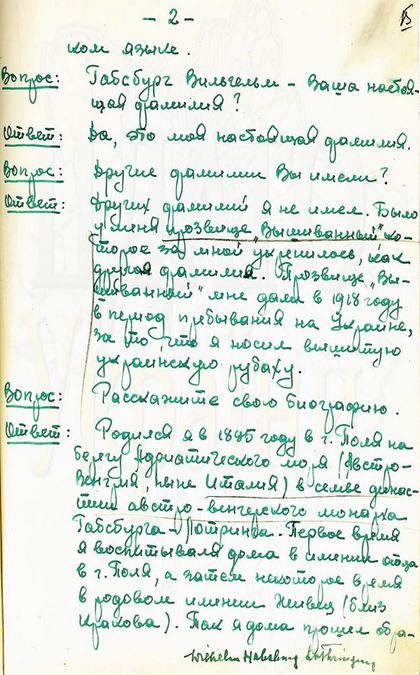 - 2 -
ком языке.
Вопрос: Габсбург Вильгельм - Ваша настоя-
щая фамилия?
Ответ: Да, это моя настоящая фамилия.
Вопрос: Другие фамилии Вы имели?
Ответ: Других фамилий я не имел. Было
у меня прозвище "Вышиванный" ко-
торое за мной укрепилось, как
другая фамилия. Прозвище "Вы-
шиванный" мне дали в 1918 году
в период пребывания на Украине,
за то, что я носил вышитую
украинскую рубаху.
Вопрос: Расскажите свою биографию.
Ответ: Родился я в 1895 году в г. Поля на
берегу Адриатического моря (Австро-
Венгрия ныне Италия) в семье динас-
тии австро-венгерского монарха
Габсбурга-Лотринга. Первое время
я воспитывался дома в имении отца
в г. Поля, а затем некоторое время
в родовом имении Живец (близ
Кракова). Там я дома прошел обра-
Wilhelm Habsburg Lothringen